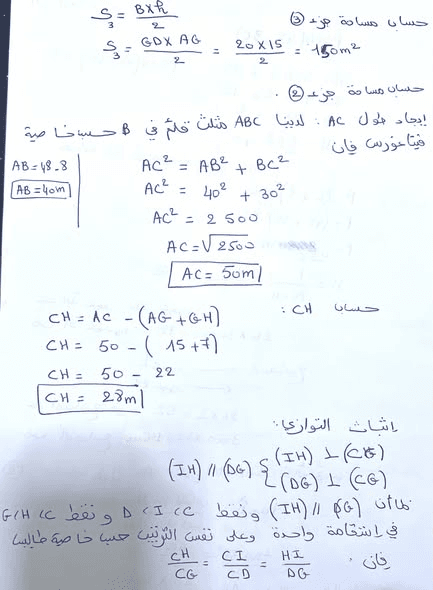 حساب مساحة جزء ③
S₃ = B×h / 2
S₃ = GD×AG / 2 = 20×15 / 2 = 150m²
حساب مساحة جزء ②.
إيجاد طول AC : لدينا ABC مثلث قائم في B حسب خاصية
فيتاغورس فإن
AB = 48-8
AB = 40m
AC² = AB² + BC²
AC² = 40² + 30²
AC² = 2 500
AC = √2500
AC = 50m
حساب CH :
CH = AC - (AG + GH)
CH = 50 - ( 15 + 7)
CH = 50 - 22
CH = 28m
إثبات التوازي:
(IH) // (DG) { (IH) ⊥ (CG)
(DG) ⊥ (CG)
بما أن (IH) // (DG) ونقط D ، I ، C و نقط G ، H ، C
في إستقامة واحدة وعلى نفس الترتيب حسب خاصية طاليس
فإن. CH/CG = CI/CD = HI/DG